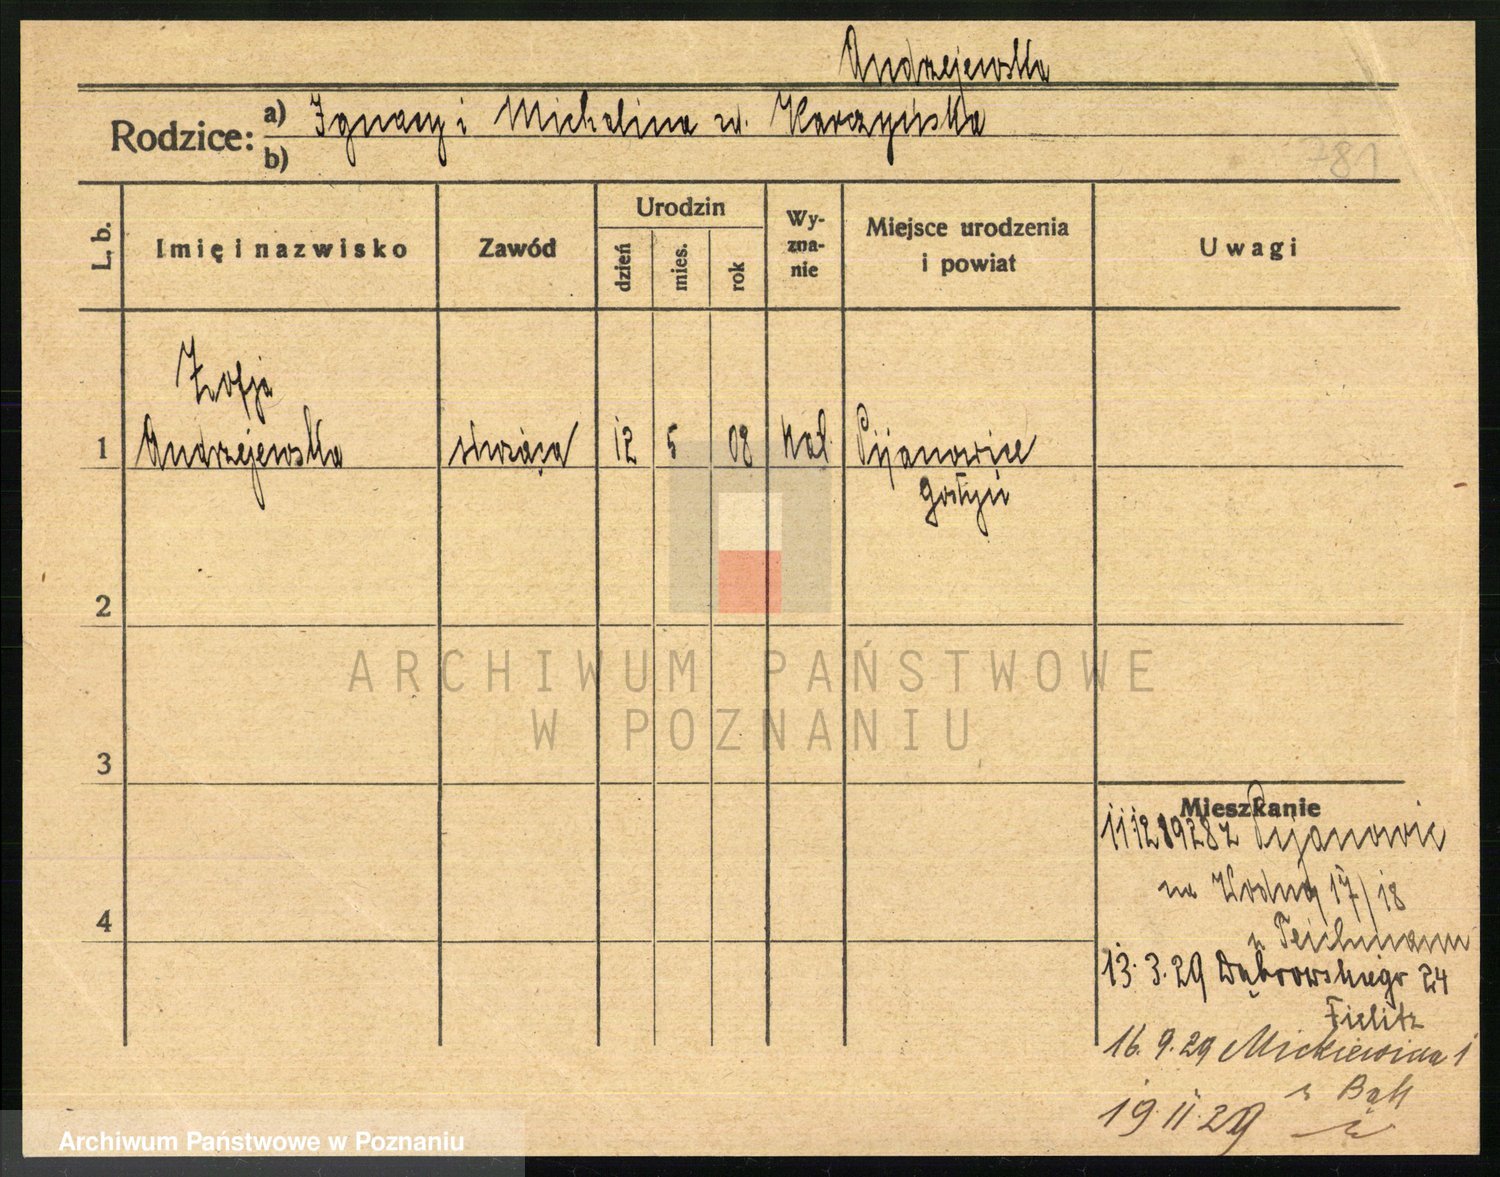 Andrzejewska
Rodzice: a) Ignacy i Michalina ur. Karczyńska
b)
781
L. b.
Imię i nazwisko
Zawód
Urodzin
dzień
mies.
rok
Wy-
zna-
nie
Miejsce urodzenia
i powiat
Uwagi
Zofja
1 Andrzejewska służąca 12 5 08 kat. Pijanowice
Gostyń
2
3
4
ARCHIWUM PAŃSTWOWE
W POZNANIU
Mieszkanie
11.12.1928 z Pijanowic
na Wodna 17/18
u Teichmann
13.3.29 Dąbrowskiego 24
Fielitz
16.9.29 Mickiewicza 1
u Bąk
19.11.29
Archiwum Państwowe w Poznaniu